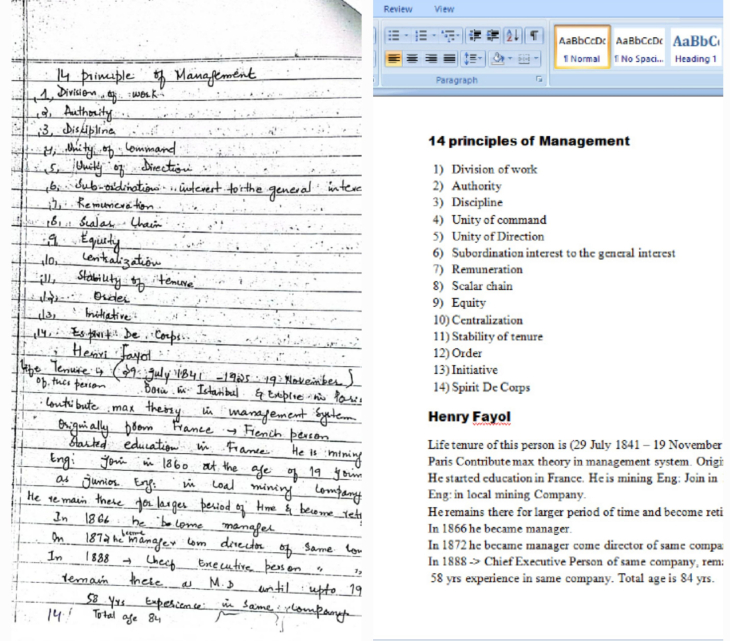 14 principle of Management
1, Division of work
2, Authority
3, Discipline
4, Unity of command
5, Unity of Direction
6, Sub-ordination interest to the general
7, Remuneration
8, Scalar Chain
9 Equity
10, Centralization
11, Stability of tenure
12, Order
13, Initiative
14, Esprit De Corps
Henri Fayol
Life Tenure (29 July 1841 - 1925 19 November)
of this person Born in Istanbul & Expire in
Contribute max theory in management System
Originally from France → French person
Started education in France He is mining
Eng: Join in 1860 at the age of 19
as junior Eng: in Coal mining Company
He remain there for larger period of time & become
In 1866 he become manager
In 1872 he manager com director of same
In 1888 → Cheif Executive person
remain there as M.D until upto 19
58 Yrs Experience in same company
14 Total age 84
Review View
AaBbCcDc AaBbCcDc AaBbC
¶ Normal ¶ No Spaci... Heading 1
Paragraph
14 principles of Management
1) Division of work
2) Authority
3) Discipline
4) Unity of command
5) Unity of Direction
6) Subordination interest to the general interest
7) Remuneration
8) Scalar chain
9) Equity
10) Centralization
11) Stability of tenure
12) Order
13) Initiative
14) Spirit De Corps
Henry Fayol
Life tenure of this person is (29 July 1841 – 19 November
Paris Contribute max theory in management system. Origi
He started education in France. He is mining Eng: Join in
Eng: in local mining Company.
He remains there for larger period of time and become reti
In 1866 he became manager.
In 1872 he became manager come director of same compa
In 1888 -> Chief Executive Person of same company, rem
58 yrs experience in same company. Total age is 84 yrs.